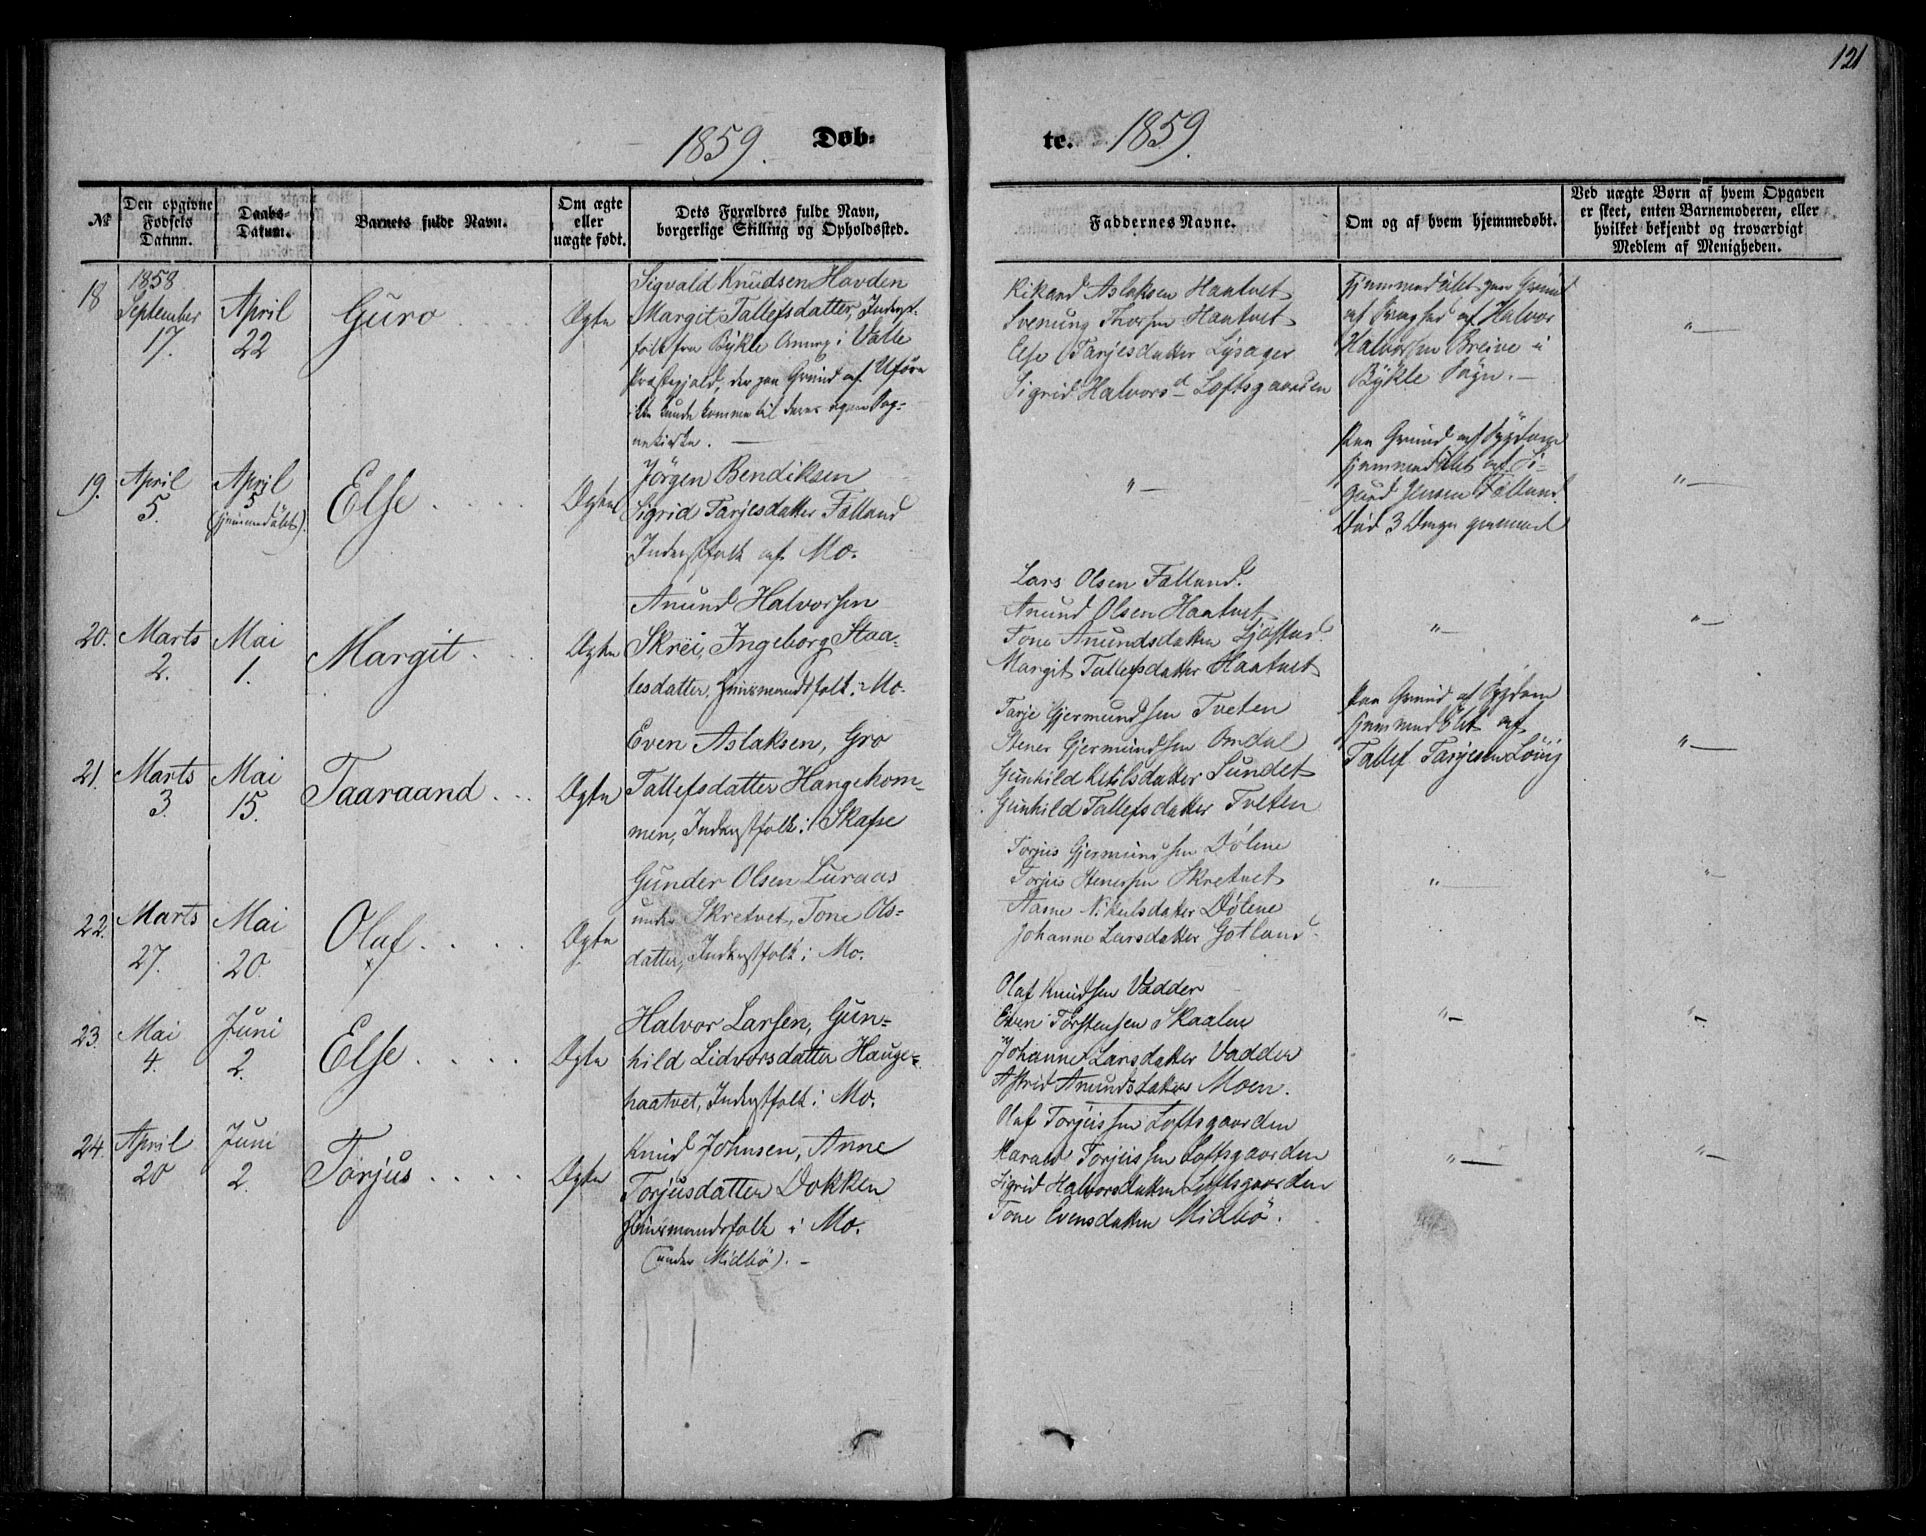 121
1859. Døb-
te. 1859.
№
Den opgivne Fødsels Datum.
Daabs-Datum.
Barnets fulde Navn.
Om ægte eller uægte født.
Dets Forældres fulde Navn, borgerlige Stilling og Opholdssted.
Faddernes Navne.
Om og af hvem hjemmedøbt.
Ved uægte Børn af hvem Opgaven er skeet, enten Barnemoderen, eller hvilket bekjendt og troværdigt Medlem af Menigheden.
18
1858.
September
17.
April
22
Guro
Ægte
Sigvald Knudsen Hovden
Margit Tallefsdatter, Inderst-
folk fra Bykle Annex i Valle
Præstegjeld, der paa Grund af Uføre
ikke kunde komme til deres egen Sog-
nekirke. —
Rikard Aslaksen Haatvet
Svenung Thorsen Haatvet
Else Tarjesdatter Lysager
Sigrid Halvorsd Loftsgaarden
Hjemmedøbt paa Grund
af Svaghed af Halvor
Halvorsen Breive i
Bykle Sogn. —
" —
19.
April
5.
April
5
(hjemmedøbt).
Else
Ægte
Jörgen Bendiksen
Sigrid Tarjesdatter Fælland
Inderstfolk af Mo.
" —
Paa Grund af Sygdom
hjemmedøbt af Si-
gurd Jensen Fælland.
Död 3 Dage gammel
" —
20.
Marts
2.
Mai
1.
Margit
Ægte
Anund Halvorsen
Skrei, Ingeborg Staa-
lesdatter, Huusmandsfolk i Mo.
Lars Olsen Fælland.
Anund Olsen Haatvet
Tone Anundsdatter Ljøstad.
Margit Tallefsdatter Haatvet
" —
" —
21.
Marts
3.
Mai
15.
Taaraand
Ægte
Even Aslaksen, Gro
Tallefsdatter Haugehom-
men, Inderstfolk i Skafse
Tarje Gjermundsen Tveten
Stener Gjermundsen Omdal
Gunhild Ketilsdatter Sundet
Gunhild Tallefsdatter Tveten
Paa Grund af Sygdom
hjemmedöbt af
Tallef Tarjesen Löng
" —
22.
Marts
27.
Mai
20.
Olaf
Ægte
Gunder Olsen Luraas
under Skretvet, Tone Ols-
datter, Inderstfolk i Mo.
Torjus Gjermundsen Dølene
Torjus Stenersen Skretvet
Aasne Nikulsdatter Dølene
Johanne Larsdatter Gotland.
" —
" —
23.
Mai
4.
Juni
2.
Else
Ægte
Halvor Larsen, Gun-
hild Lidvorsdatter Hauge-
haatvet, Inderstfolk i Mo.
Olaf Knudsen Vadder
Even Torstensen Skaalen
Johanne Larsdatter Vadder
Astrid Anundsdatter Moen.
" —
" —
24.
April
20
Juni
2.
Torjus
Ægte
Knud Johnsen, Anne
Torjusdatter Dokken
Huusmandsfolk i Mo.
(under Midbö). —
Olaf Torjussen Loftsgaarden
Harald Torjussen Loftsgaarden
Sigrid Halvorsdatter Loftsgaarden
Tone Evensdatter Midbö.
" —
" —